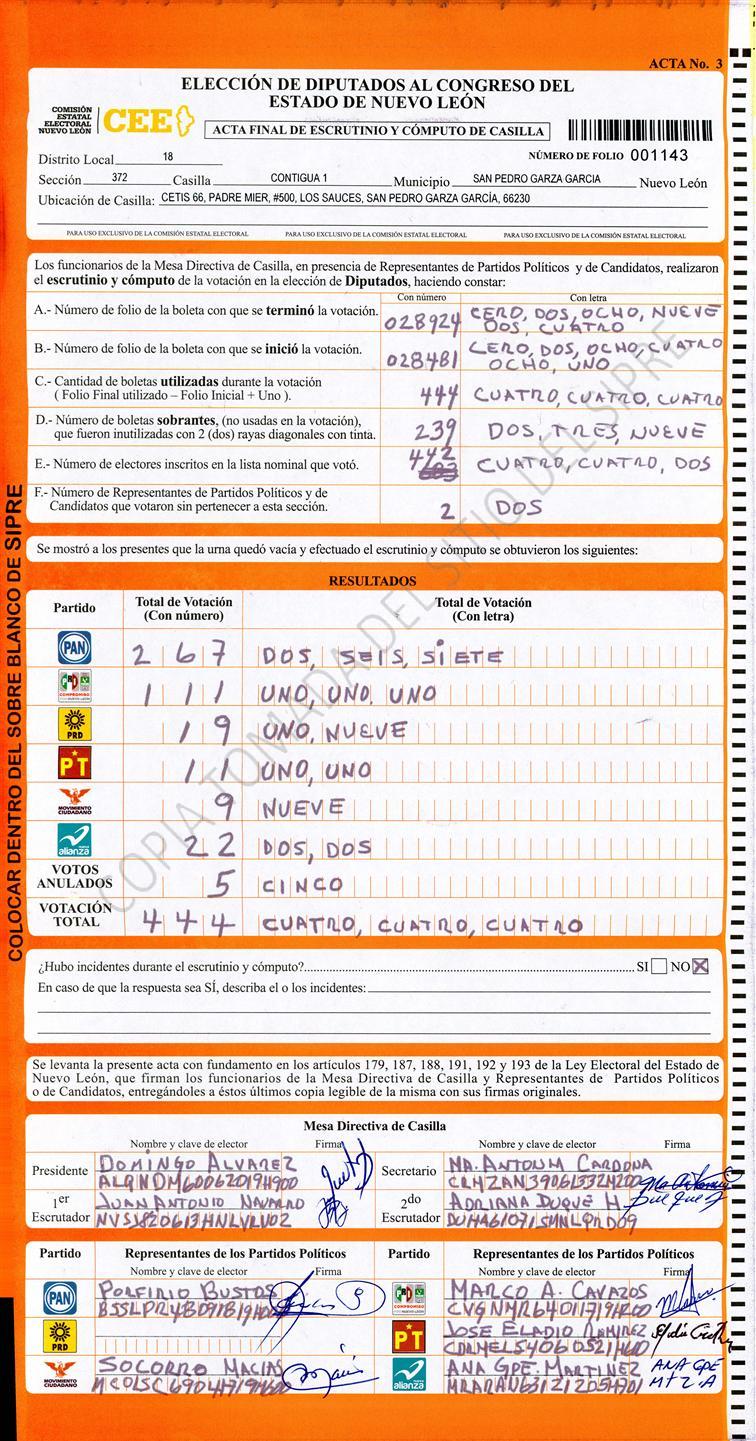 ACTA No. 3
ELECCIÓN DE DIPUTADOS AL CONGRESO DEL
ESTADO DE NUEVO LEÓN
COMISIÓN
ESTATAL
ELECTORAL
NUEVO LEÓN
CEE
ACTA FINAL DE ESCRUTINIO Y CÓMPUTO DE CASILLA
Distrito Local 18
NÚMERO DE FOLIO 001143
Sección 372 Casilla CONTIGUA 1 Municipio SAN PEDRO GARZA GARCIA Nuevo León
Ubicación de Casilla: CETIS 66, PADRE MIER, #500, LOS SAUCES, SAN PEDRO GARZA GARCÍA, 66230
PARA USO EXCLUSIVO DE LA COMISIÓN ESTATAL ELECTORAL PARA USO EXCLUSIVO DE LA COMISIÓN ESTATAL ELECTORAL PARA USO EXCLUSIVO DE LA COMISIÓN ESTATAL ELECTORAL
Los funcionarios de la Mesa Directiva de Casilla, en presencia de Representantes de Partidos Políticos y de Candidatos, realizaron
el escrutinio y cómputo de la votación en la elección de Diputados, haciendo constar:
Con número Con letra
A.- Número de folio de la boleta con que se terminó la votación. 028924 CERO, DOS, OCHO, NUEVE
DOS, CUATRO
B.- Número de folio de la boleta con que se inició la votación. 028481 CERO, DOS, OCHO, CUATRO
OCHO, UNO
C.- Cantidad de boletas utilizadas durante la votación
( Folio Final utilizado – Folio Inicial + Uno ). 444 CUATRO, CUATRO, CUATRO
D.- Número de boletas sobrantes, (no usadas en la votación),
que fueron inutilizadas con 2 (dos) rayas diagonales con tinta. 239 DOS, TRES, NUEVE
E.- Número de electores inscritos en la lista nominal que votó. 442 CUATRO, CUATRO, DOS
F.- Número de Representantes de Partidos Políticos y de
Candidatos que votaron sin pertenecer a esta sección. 2 DOS
Se mostró a los presentes que la urna quedó vacía y efectuado el escrutinio y cómputo se obtuvieron los siguientes:
RESULTADOS
Partido Total de Votación Total de Votación
(Con número) (Con letra)
PAN 267 DOS, SEIS, SIETE
PRI COMPROMISO 111 UNO, UNO, UNO
PRD 19 UNO, NUEVE
PT 11 UNO, UNO
MOVIMIENTO CIUDADANO 9 NUEVE
nueva alianza 22 DOS, DOS
VOTOS
ANULADOS 5 CINCO
VOTACIÓN
TOTAL 444 CUATRO, CUATRO, CUATRO
¿Hubo incidentes durante el escrutinio y cómputo? SI NO X
En caso de que la respuesta sea SÍ, describa el o los incidentes:
Se levanta la presente acta con fundamento en los artículos 179, 187, 188, 191, 192 y 193 de la Ley Electoral del Estado de
Nuevo León, que firman los funcionarios de la Mesa Directiva de Casilla y Representantes de Partidos Políticos
o de Candidatos, entregándoles a éstos últimos copia legible de la misma con sus firmas originales.
Mesa Directiva de Casilla
Nombre y clave de elector Firma Nombre y clave de elector Firma
Presidente DOMINGO ALVAREZ Secretario MA. ANTONIA CARDONA
1er JUAN ANTONIO NAVARRO 2do ADRIANA DUQUE H
Escrutador Escrutador
Partido Representantes de los Partidos Políticos Partido Representantes de los Partidos Políticos
Nombre y clave de elector Firma Nombre y clave de elector Firma
PAN PORFIRIO BUSTOS PRI MARCO A. CAVAZOS
PRD PT JOSE ELADIO RAMIREZ
MOVIMIENTO CIUDADANO SOCORRO MACIAS nueva alianza ANA GPE. MARTINEZ ANA GPE
COLOCAR DENTRO DEL SOBRE BLANCO DE SIPRE
COPIA TOMADA DEL SITIO DEL SIPRE